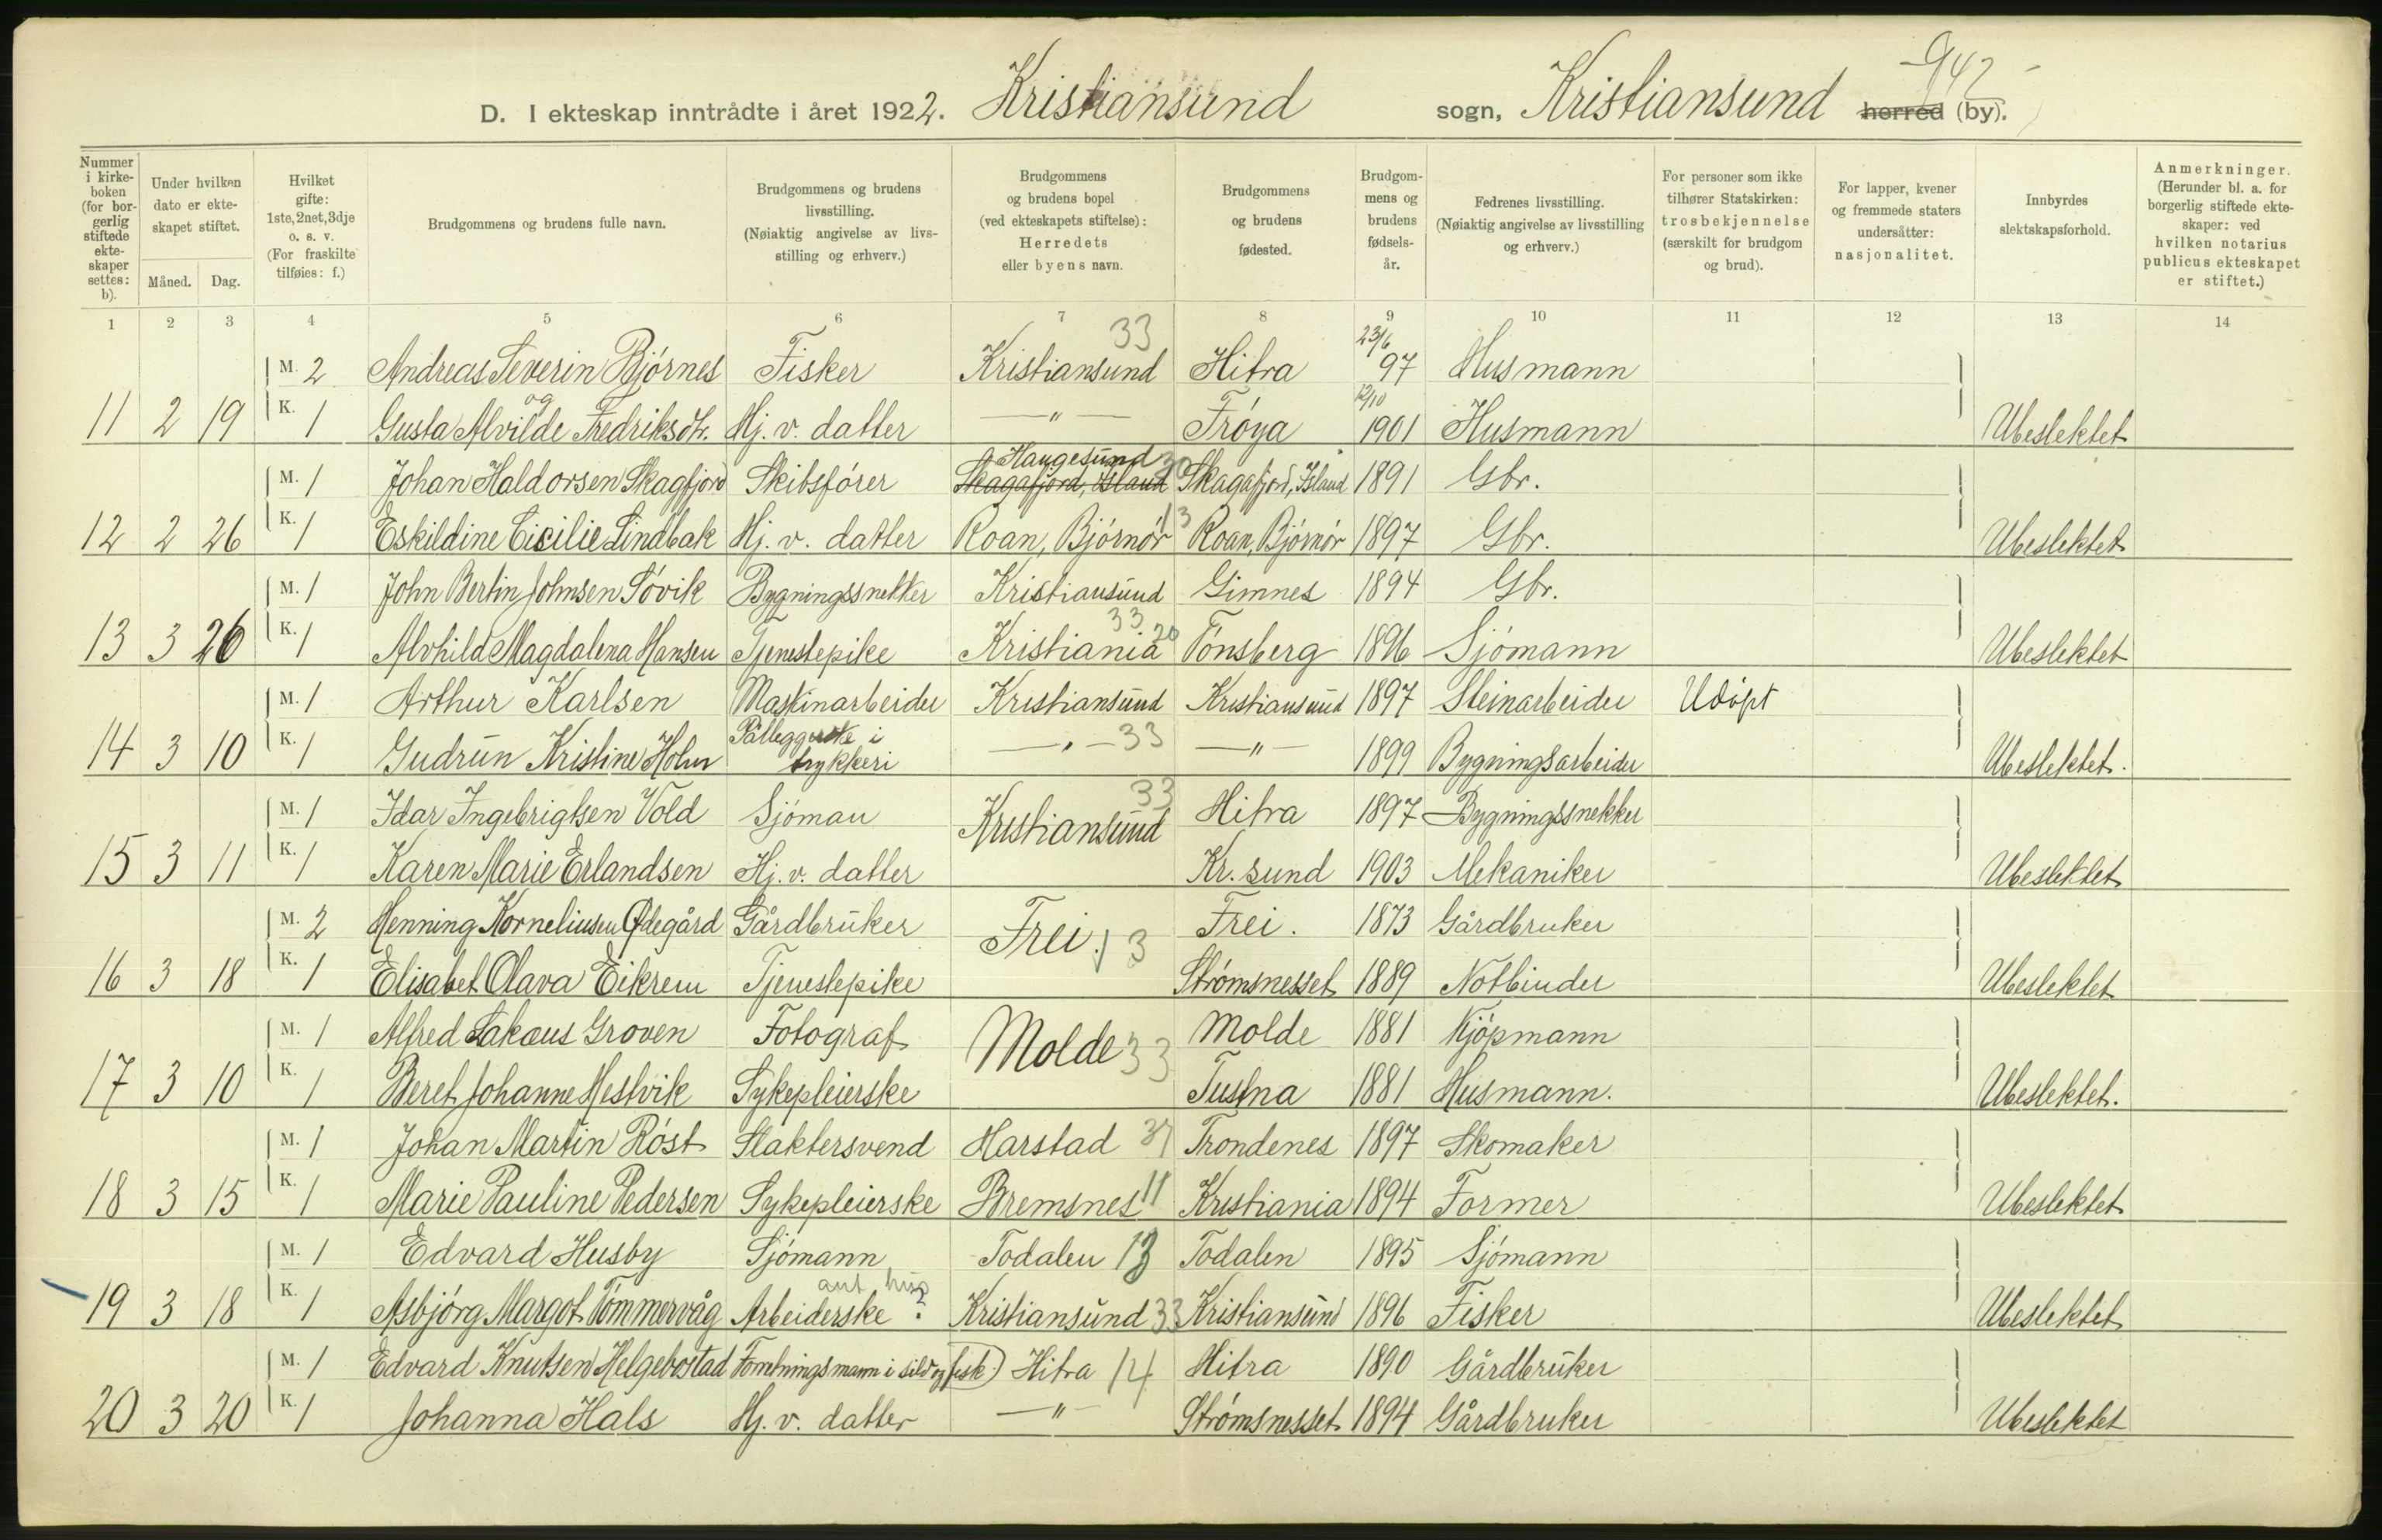 942
D. I ekteskap inntrådte i året 1922. Kristiansund sogn, Kristiansund herred (by).
Nummer i kirkeboken (for borgerlig stiftede ekteskaper settes: b).
Under hvilken dato er ekteskapet stiftet.
Måned. Dag.
Hvilket gifte: 1ste, 2net, 3dje o. s. v. (For fraskilte tilføies: f.)
Brudgommens og brudens fulle navn.
Brudgommens og brudens livsstilling. (Nøiaktig angivelse av livsstilling og erhverv.)
Brudgommens og brudens bopel (ved ekteskapets stiftelse): Herredets eller byens navn.
Brudgommens og brudens fødested.
Brudgommens og brudens fødselsår.
Fedrenes livsstilling. (Nøiaktig angivelse av livsstilling og erhverv.)
For personer som ikke tilhører Statskirken: trosbekjennelse (særskilt for brudgom og brud).
For lapper, kvener og fremmede staters undersåtter: nasjonalitet.
Innbyrdes slektskapsforhold.
Anmerkninger. (Herunder bl. a. for borgerlig stiftede ekteskaper: ved hvilken notarius publicus ekteskapet er stiftet.)
1 2 3 4 5 6 7 8 9 10 11 12 13 14
M. 2 Andreas Severin Bjørnes Fisker Kristiansund 33 Hitra 23/6 97 Husmann
og
11 2 19 K. 1 Gusta Alvilde Fredriksdtr. Hj. v. datter — " — Frøya 12/10 1901 Husmann Ubeslektet
Haugesund 30
M. 1 Johan Haldorsen Skagfjord Skibsfører Skagafjord, Island Skagafjord, Island 1891 Gbr.
12 2 26 K. 1 Eskildine Cisilie Lindbak Hj. v. datter Roan, Bjørnør 13 Roan, Bjørnør 1897 Gbr. Ubeslektet
M. 1 John Bertin Johnsen Søvik Bygningssnekker Kristiansund 33 Gimnes 1894 Gbr.
13 3 26 K. 1 Alvhild Magdalena Hansen Tjenestepike Kristiania 20 Tønsberg 1896 Sjømann Ubeslektet
M. 1 Arthur Karlsen Maskinarbeider Kristiansund Kristiansund 1897 Steinarbeider Udøpt
14 3 10 K. 1 Gudrun Kristine Holm Påleggerske i trykkeri — " — 33 — " — 1899 Bygningsarbeider Ubeslektet.
M. 1 Idar Ingebrigtsen Vold Sjöman Kristiansund 33 Hitra 1897 Bygningssnekker
15 3 11 K. 1 Karen Marie Erlandsen Hj. v. datter Kr. sund 1903 Mekaniker Ubeslektet
M. 2 Henning Korneliusen Ødegård Gårdbruker Frei. 13 Frei. 1873 Gårdbruker
16 3 18 K. 1 Elisabet Olava Eikrem Tjenestepike Strømsnesset 1889 Notbinder Ubeslektet
M. 1 Alfred Sakæus Groven Fotograf Molde 33 Molde 1881 Kjøpmann
17 3 10 K. 1 Beret Johanne Hestvik Sykepleierske Tustna 1881 Husmann. Ubeslektet.
M. 1 Johan Martin Røst Slaktersvend Harstad 37 Trondenes 1897 Skomaker
18 3 15 K. 1 Marie Pauline Pedersen Sykepleierske Bremsnes 11 Kristiania 1894 Former Ubeslektet
M. 1 Edvard Husby Sjømann Todalen 13 Todalen 1895 Sjømann
19 3 18 K. 1 Asbjørg Margot Tømmervåg Arbeiderske ? Kristiansund 33 Kristiansund 1896 Fisker Ubeslektet
M. 1 Edvard Knutsen Helgebostad Forretningsmann i sild og fisk) Hitra 14 Hitra 1890 Gårdbruker
20 3 20 K. 1 Johanna Hals Hj. v. datter — " — Strømsnesset 1894 Gårdbruker Ubeslektet